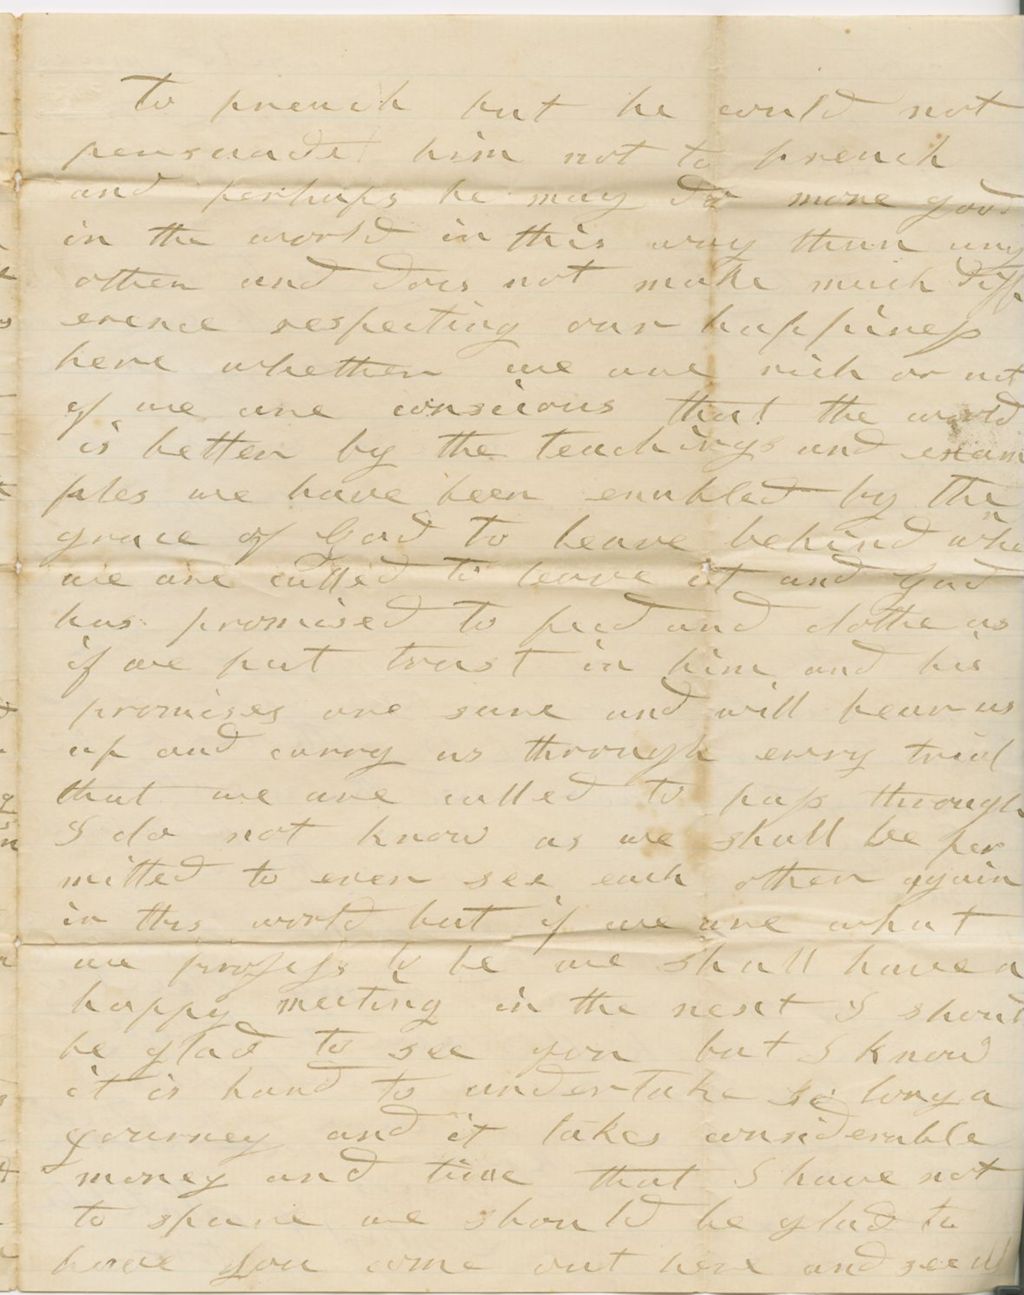 To preach but he could not
persuade him not to preach
and perhaps he may do more good
in the world in this way than any
other and does not make much diff
erence respecting our happiness
here whether we are rich or not
if we are conscious that the world
is better by the teachings and exam
ples we have been enabled by the
grace of God to leave behind when
we are called to leave it and God
has promised to feed and clothe us
if we put trust in him and his
promises are sure and will bear us
up and carry us through every trial
that we are called to pass through
I do not know as we shall be per
mitted to even see each other again
in this world but if we are what
we profess to be we shall have a
happy meeting in the next I should
be glad to see you but I know
it is hard to undertake so long a
journey and it takes considerable
money and time that I have not
to spare we should be glad to
have you come out here and see us